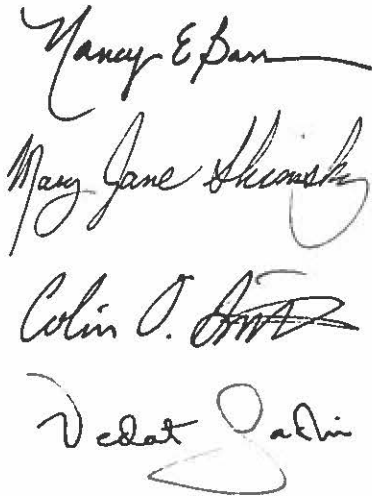 Nancy E Barr
Mary Jane Shimsky
Colin O. Smith
Vedat